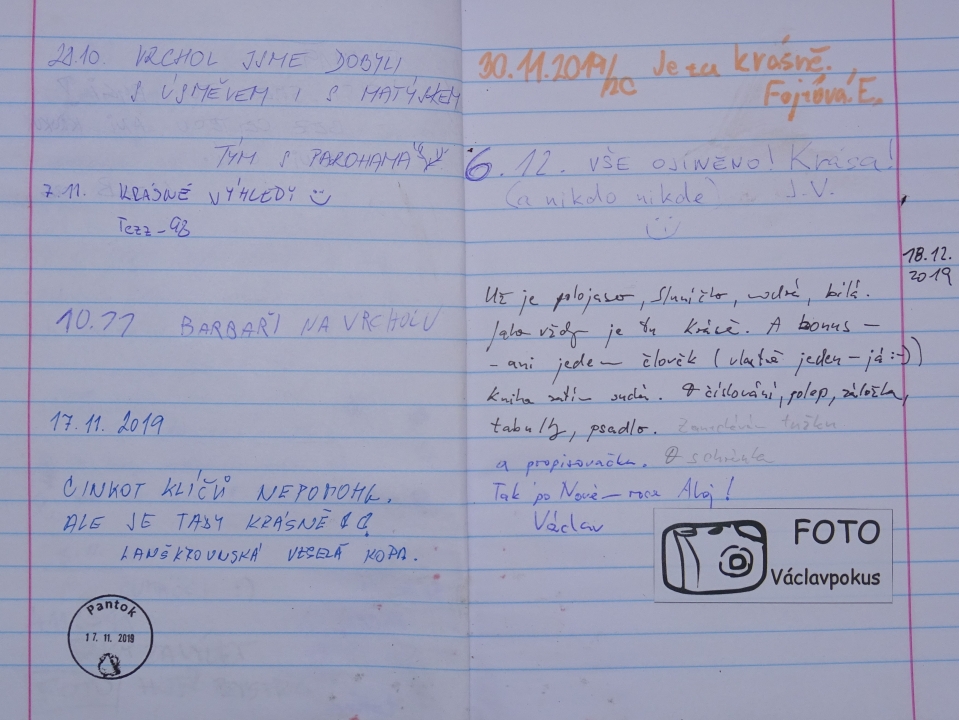 28.10. VRCHOL JSME DOBYLI
S ÚSMĚVEM I S MATÝSKEM
TÝM S PAROHAMA
7.11. KRÁSNÉ VÝHLEDY
Tezz-98
10.11 BARBAŘI NA VRCHOLU
17.11. 2019
CINKOT KLÍČŮ NEPOMOHL.
ALE JE TADY KRÁSNĚ!!
LANŠKROUNSKÁ VESELÁ KOPA.
Pantok
17. 11. 2019
30.11.2019 Je tu krásně.
Fojtová E.
6.12. VŠE OJÍNĚNO! Krása!
(a nikdo nikde) J.V.
18.12.
2019
Už je polojasno, sluníčko, modrá, bílá.
Jako vždy je tu krásě. A bonus -
- ani jeden člověk (vlastně jeden - já :-))
Kniha zatím sudá. číslování, polep, záložka,
tabulky, psadlo. Zanechávám tužku
a propisovačka. schránka
Tak po Nové- roce Ahoj!
Václav
FOTO
Václavpokus